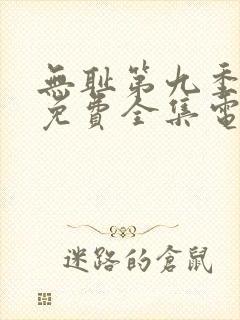 無恥第九季
免費全集電
迷路的倉鼠